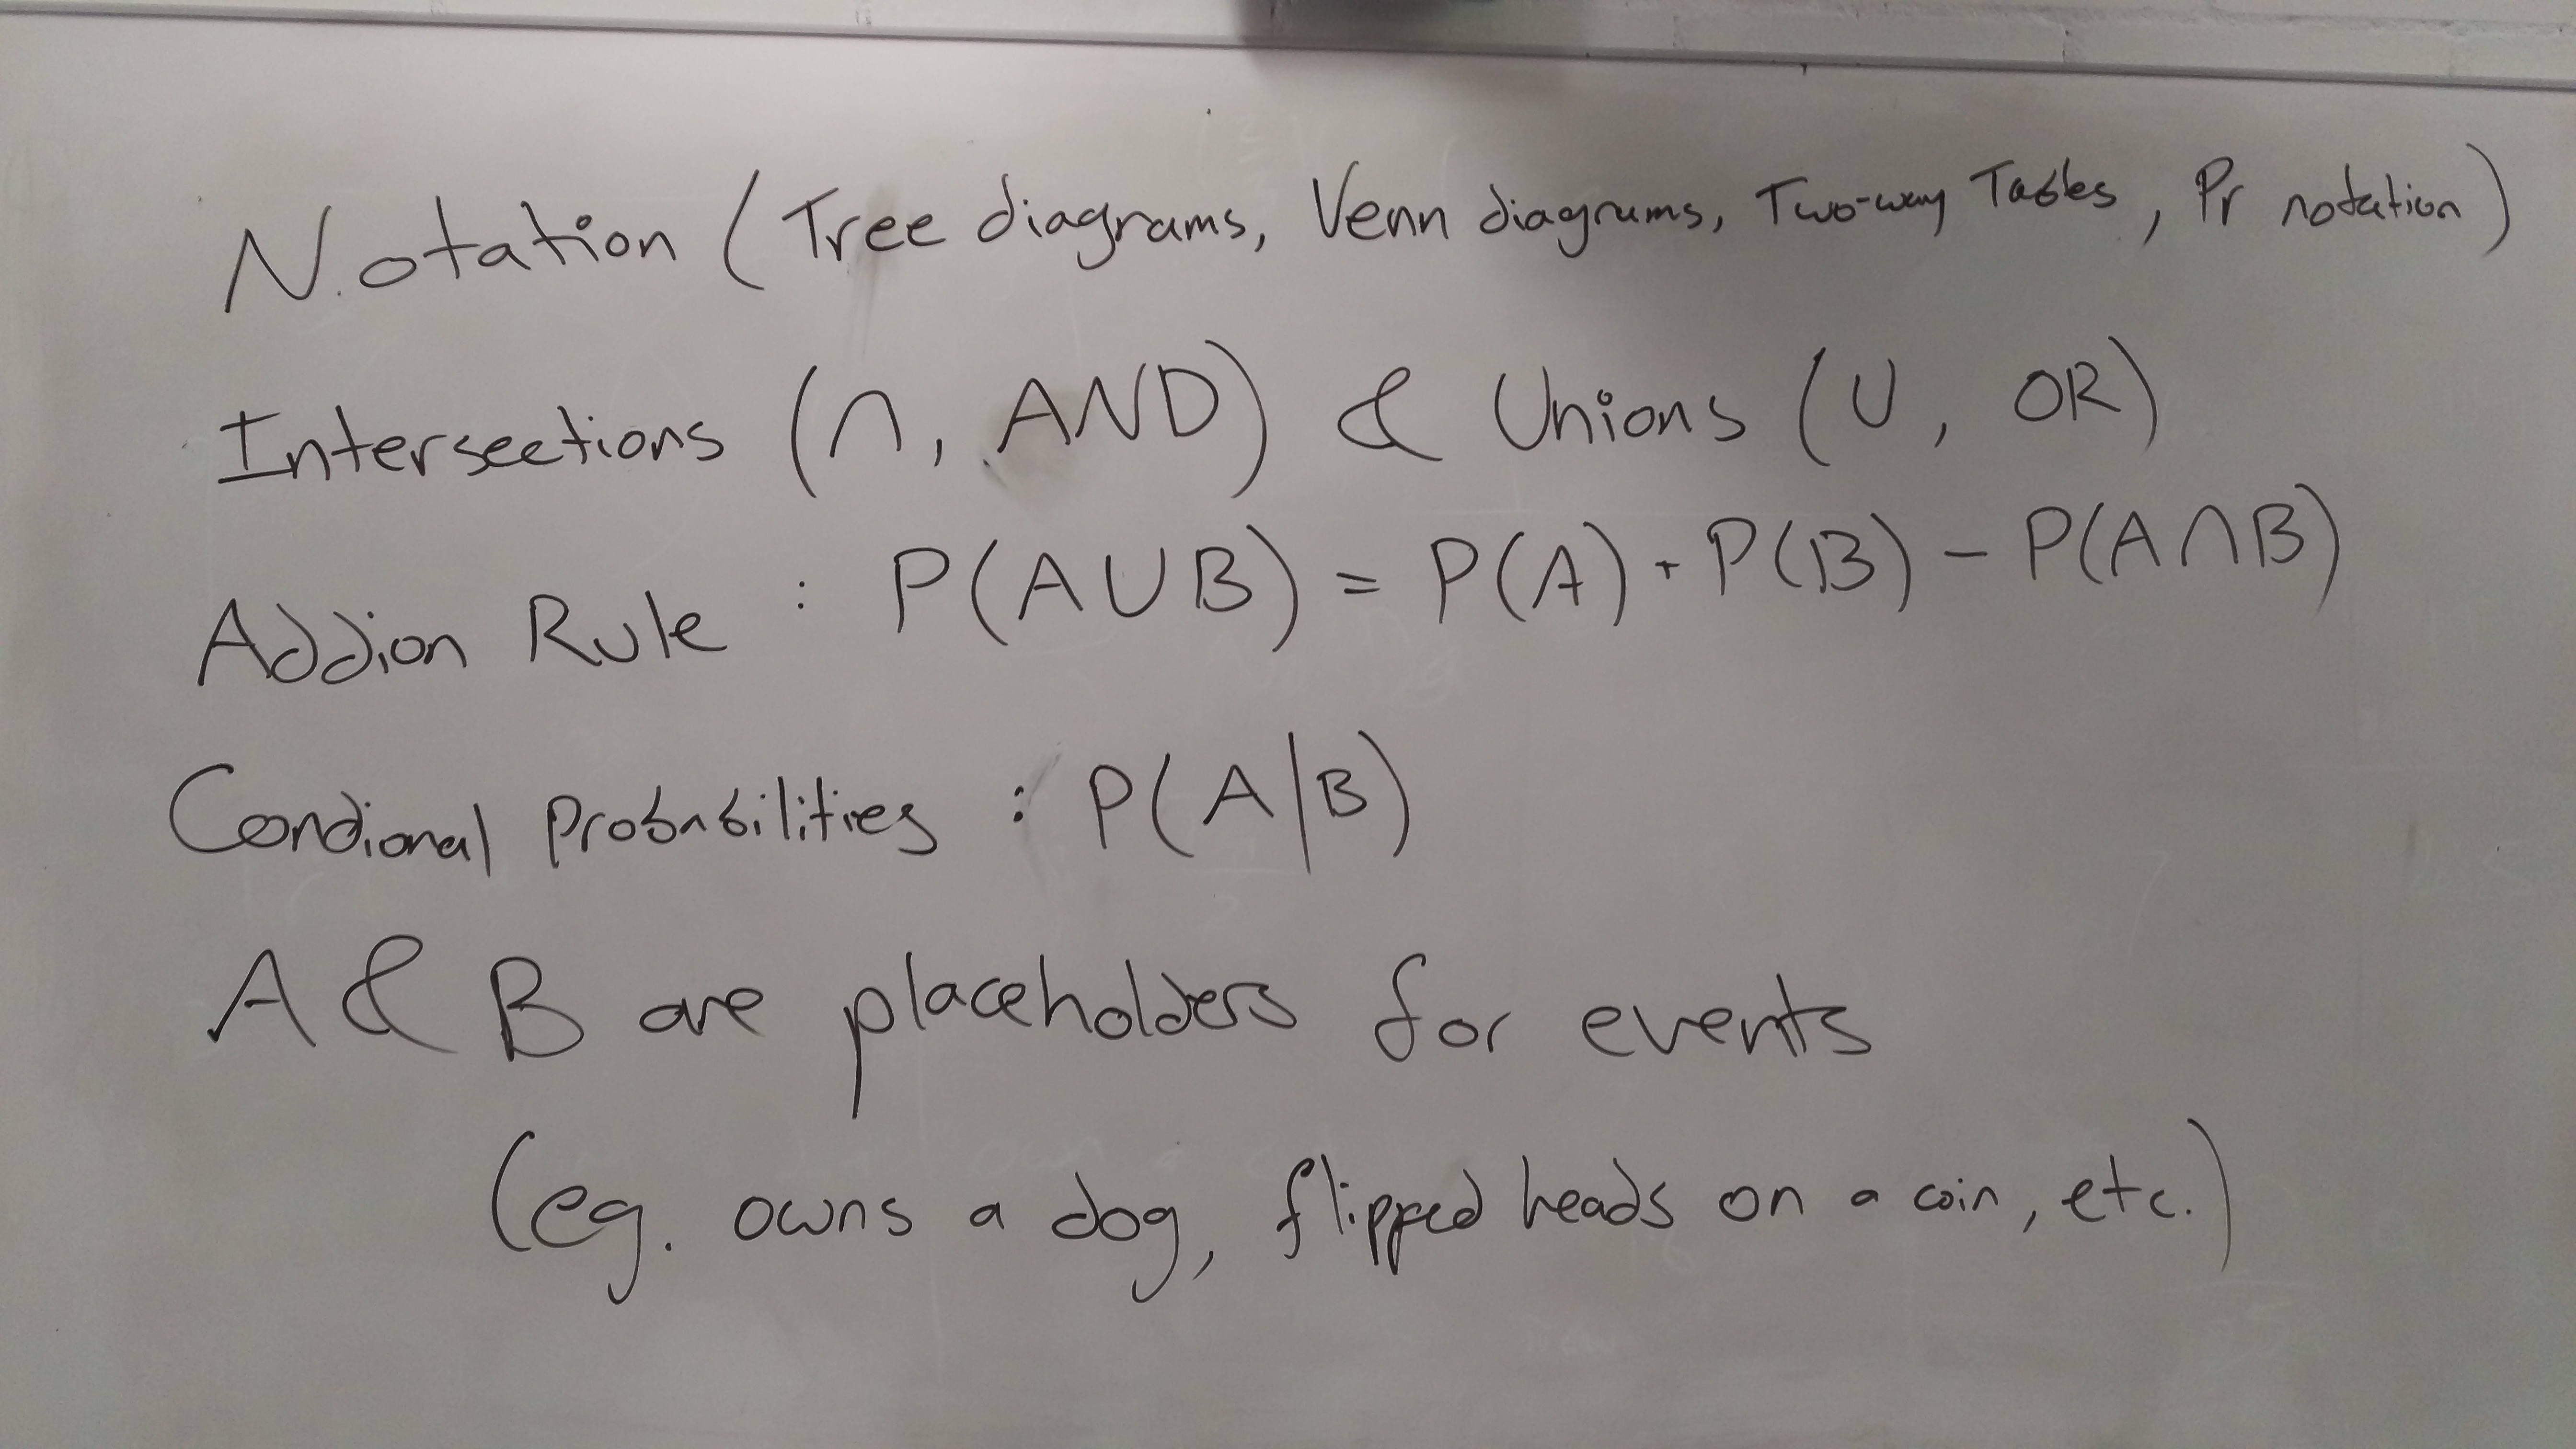 Notation (Tree diagrams, Venn diagrams, Two-way Tables, Pr notation)
Intersections (∩, AND) & Unions (U, OR)
Addion Rule : P(A∪B) = P(A) + P(B) - P(A∩B)
Condional Probabilities : P(A|B)
A & B are placeholders for events
(eg. owns a dog, flipped heads on a coin, etc.)